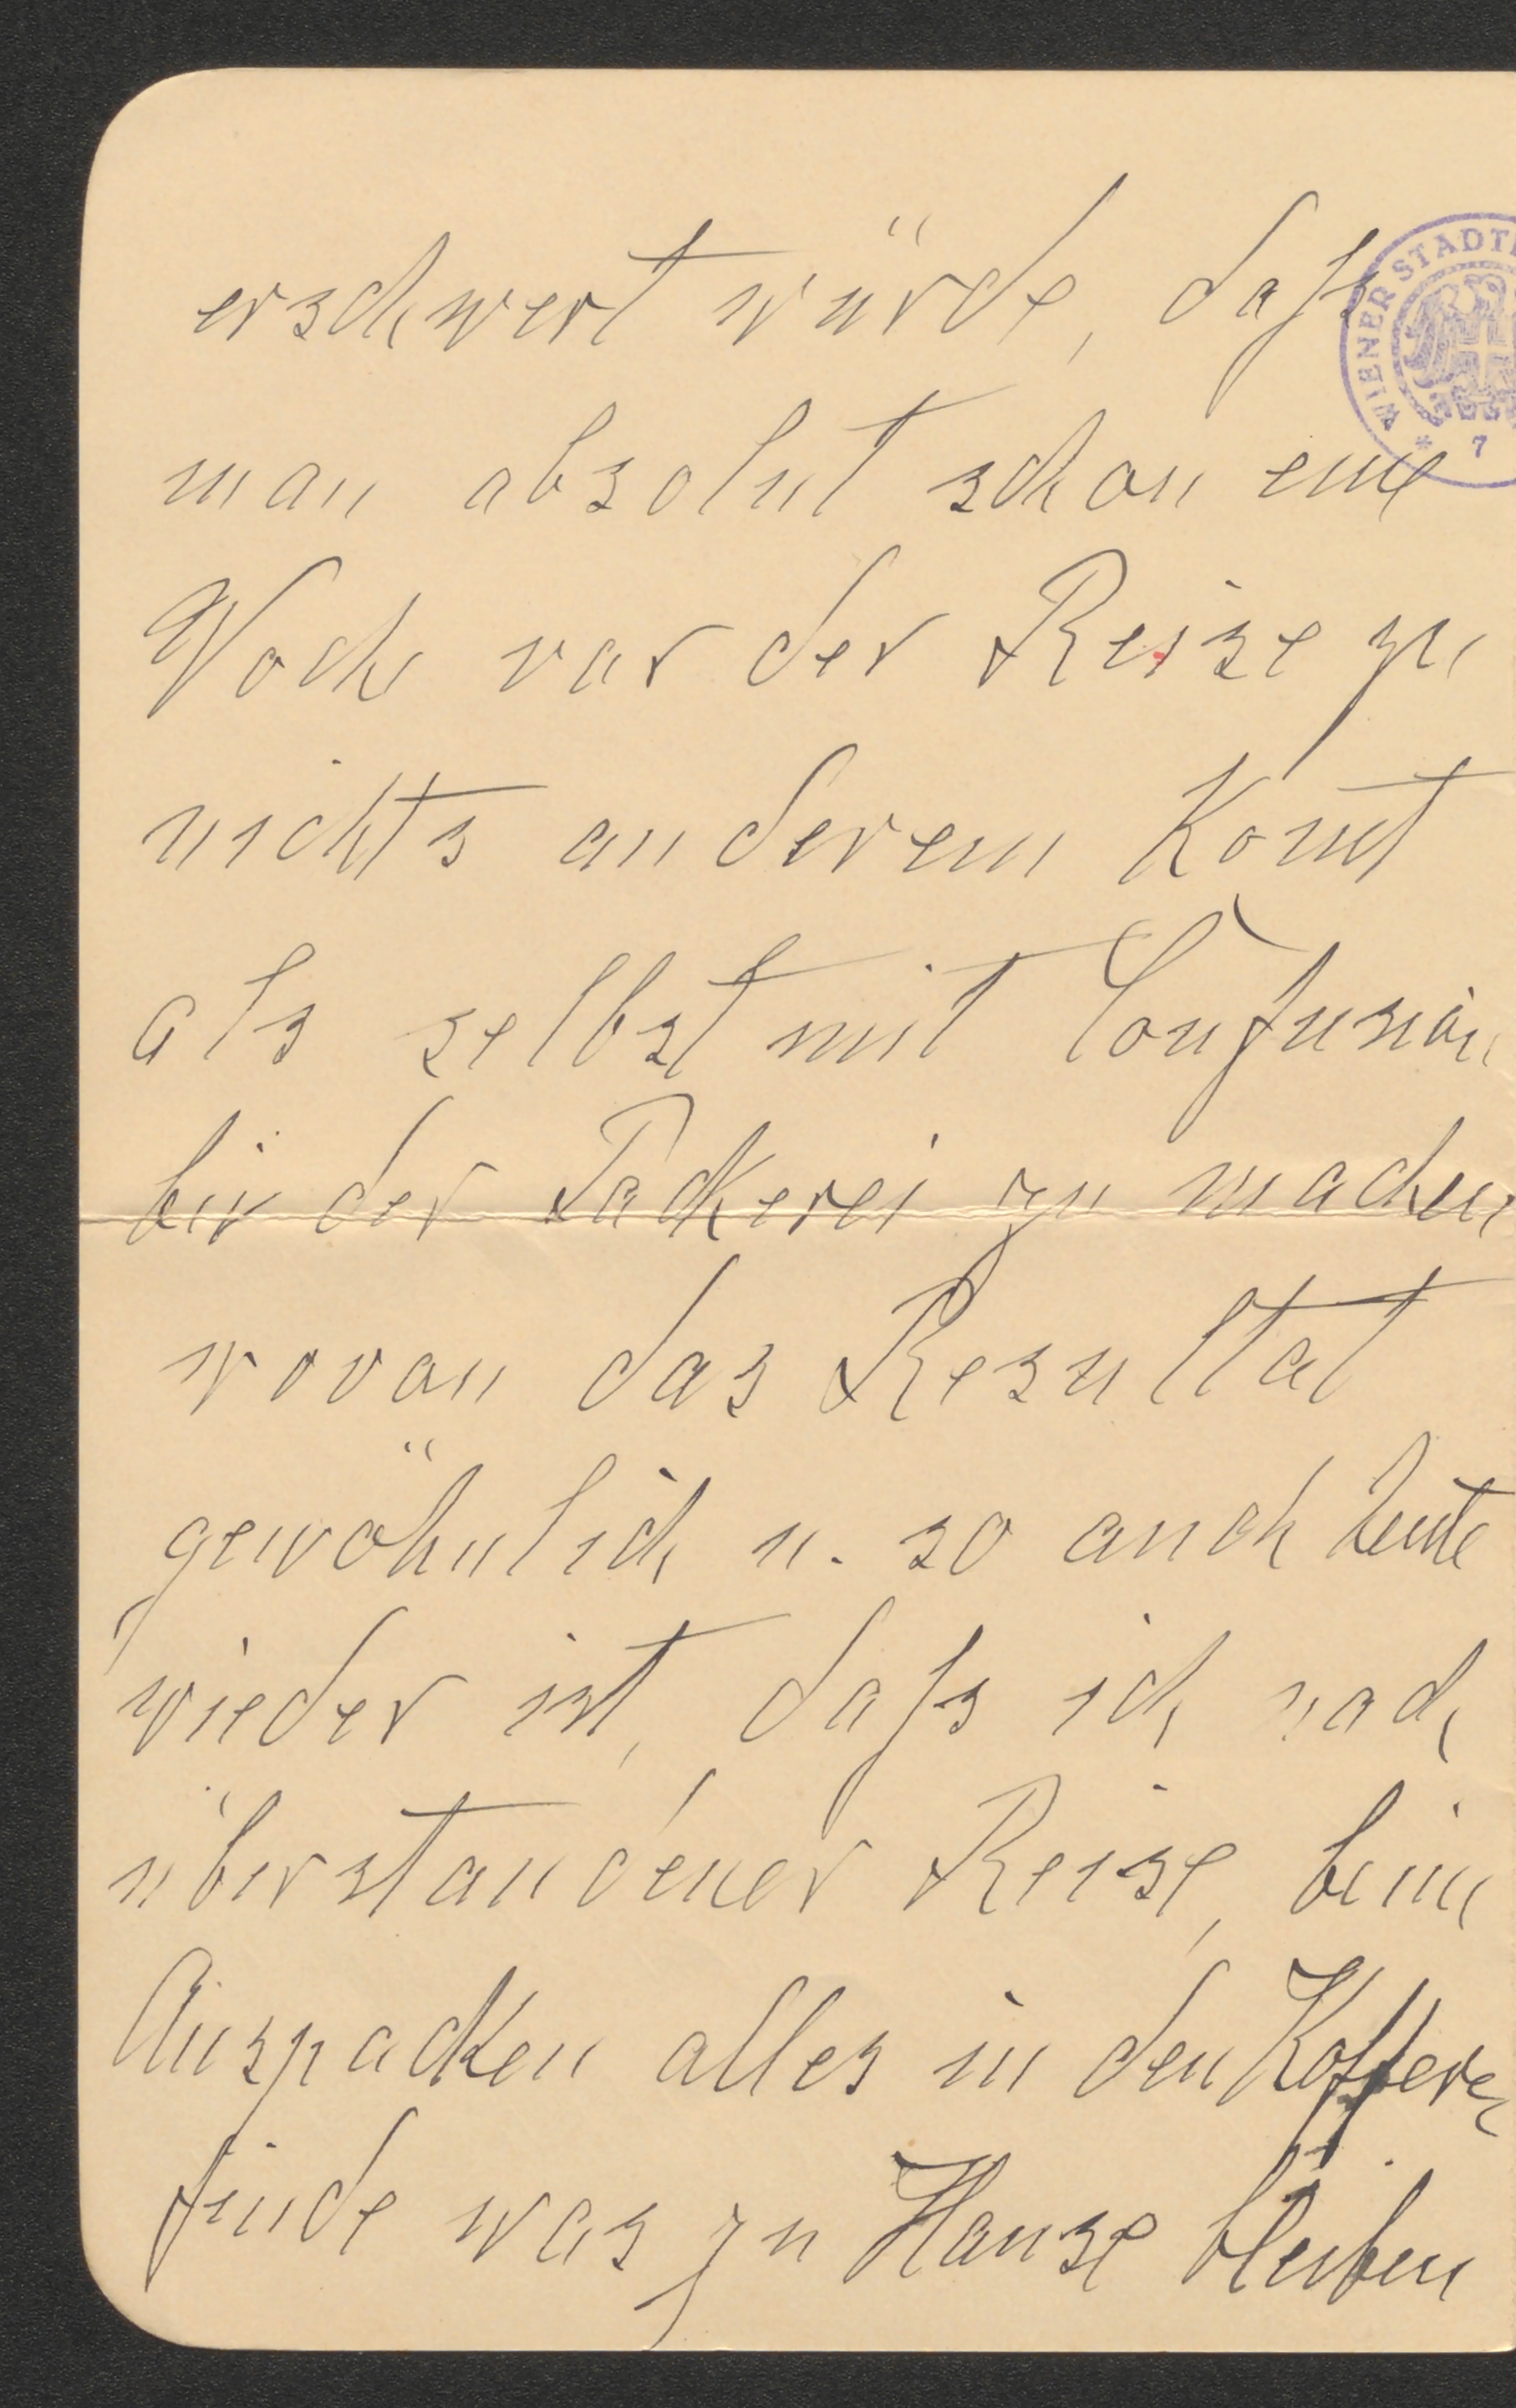 erschwert würde, daſs
man absolut schon eine
Woche vor der Reise zu
nichts anderem komt
als selbst mit Confusion
bei der Packerei zu machen
wovon das Resultat
gewöhnlich u. so auch heute
wieder ist, daſs ich nach
überstandener Reise, beim
Auspacken alles in den Koffern
finde was zu Hause bleiben
WIENER STADT
* 7